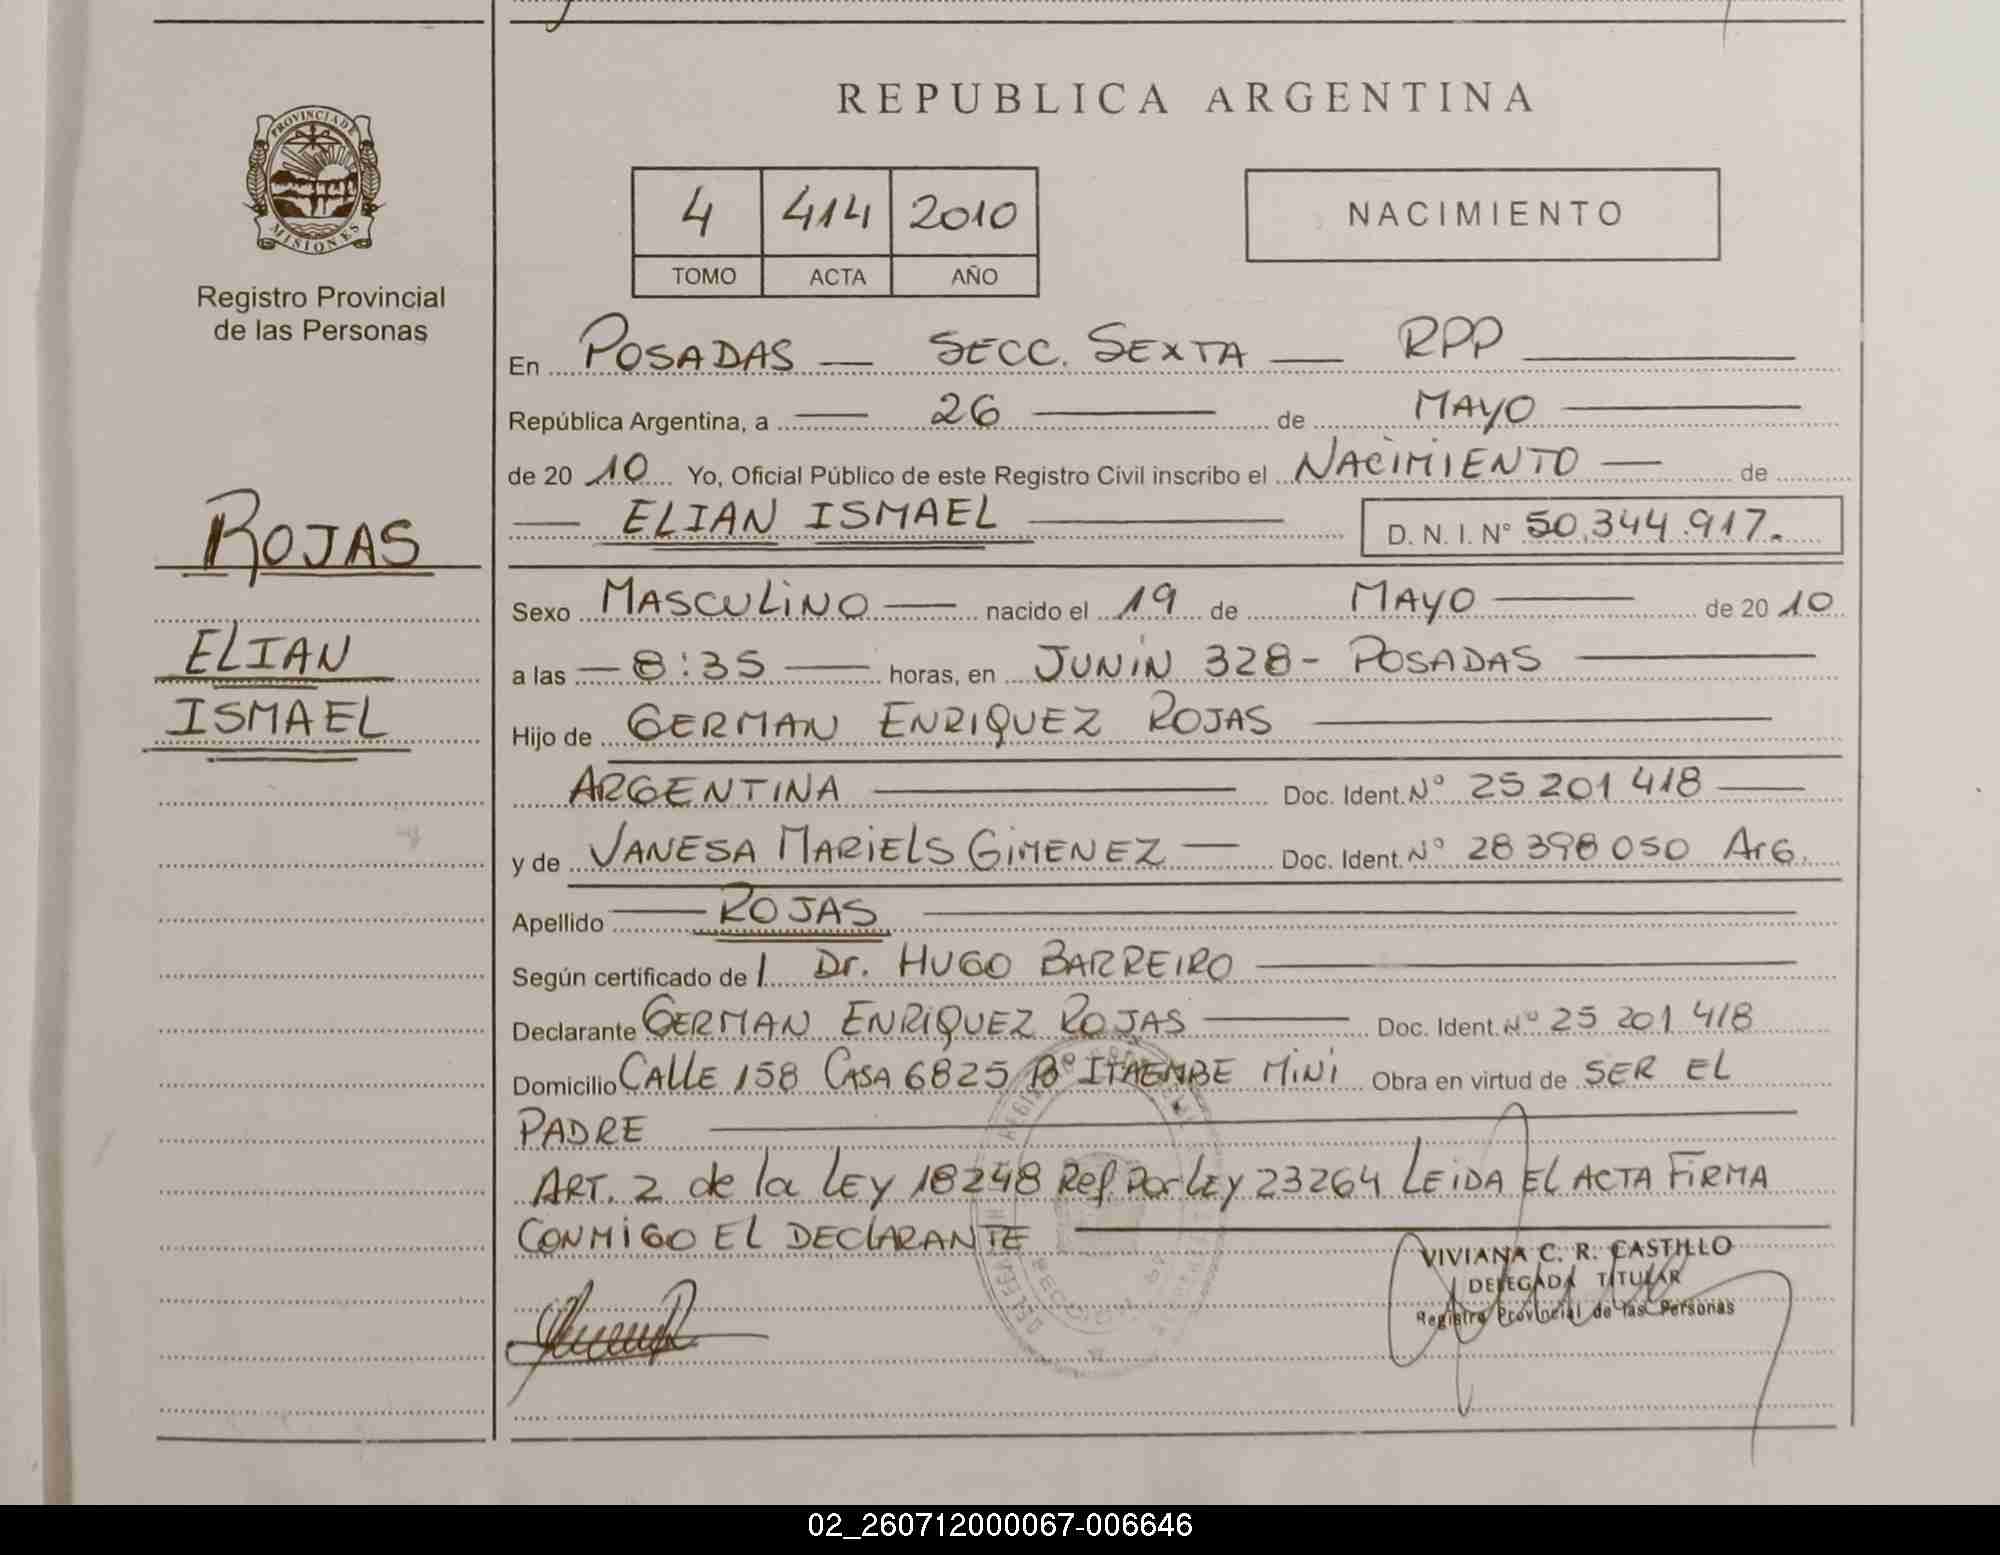 PROVINCIA DE
MISIONES
Registro Provincial
de las Personas
ROJAS
ELIAN
ISMAEL
REPUBLICA ARGENTINA
4 414 2010
TOMO ACTA AÑO
NACIMIENTO
En POSADAS — SECC. SEXTA — RPP
República Argentina, a — 26 — de MAYO
de 20 10 Yo, Oficial Público de este Registro Civil inscribo el NACIMIENTO — de
— ELIAN ISMAEL — D. N. I. N° 50.344.917.
Sexo MASCULINO — nacido el 19 de MAYO — de 20 10
a las — 8:35 — horas, en JUNIN 328 - POSADAS —
Hijo de GERMAN ENRIQUEZ ROJAS —
ARGENTINA — Doc. Ident. N° 25 201 418 —
y de VANESA MARIELS GIMENEZ — Doc. Ident. N° 28 398 050 ArG.
Apellido — ROJAS —
Según certificado de l Dr. HUGO BARREIRO —
Declarante GERMAN ENRIQUEZ ROJAS — Doc. Ident. N° 25 201 418
Domicilio CALLE 158 CASA 6825 B° ITAEMBE MINI Obra en virtud de SER EL
PADRE —
ART. 2 de la LEY 18248 Ref. Por LEY 23264 LEIDA EL ACTA FIRMA
CONMIGO EL DECLARANTE —
VIVIANA C. R. CASTILLO
DELEGADA TITULAR
Registro Provincial de las Personas
02_260712000067-006646